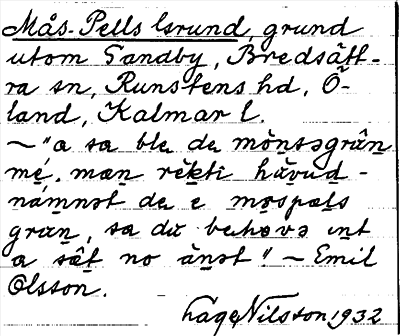 Mås-Pells Grund, grund
utom Sandby, Bredsätt-
ra sn, Runstens hd, Ö-
land, Kalmar l.
~ "a sa ble de mònsəgrân
mé. mæn rékti hävud-
námnət de e mospæls
gran, sa dü behøvə int
a sät no ànət" ~ Emil
Olsson.
Lage Nilsson 1932